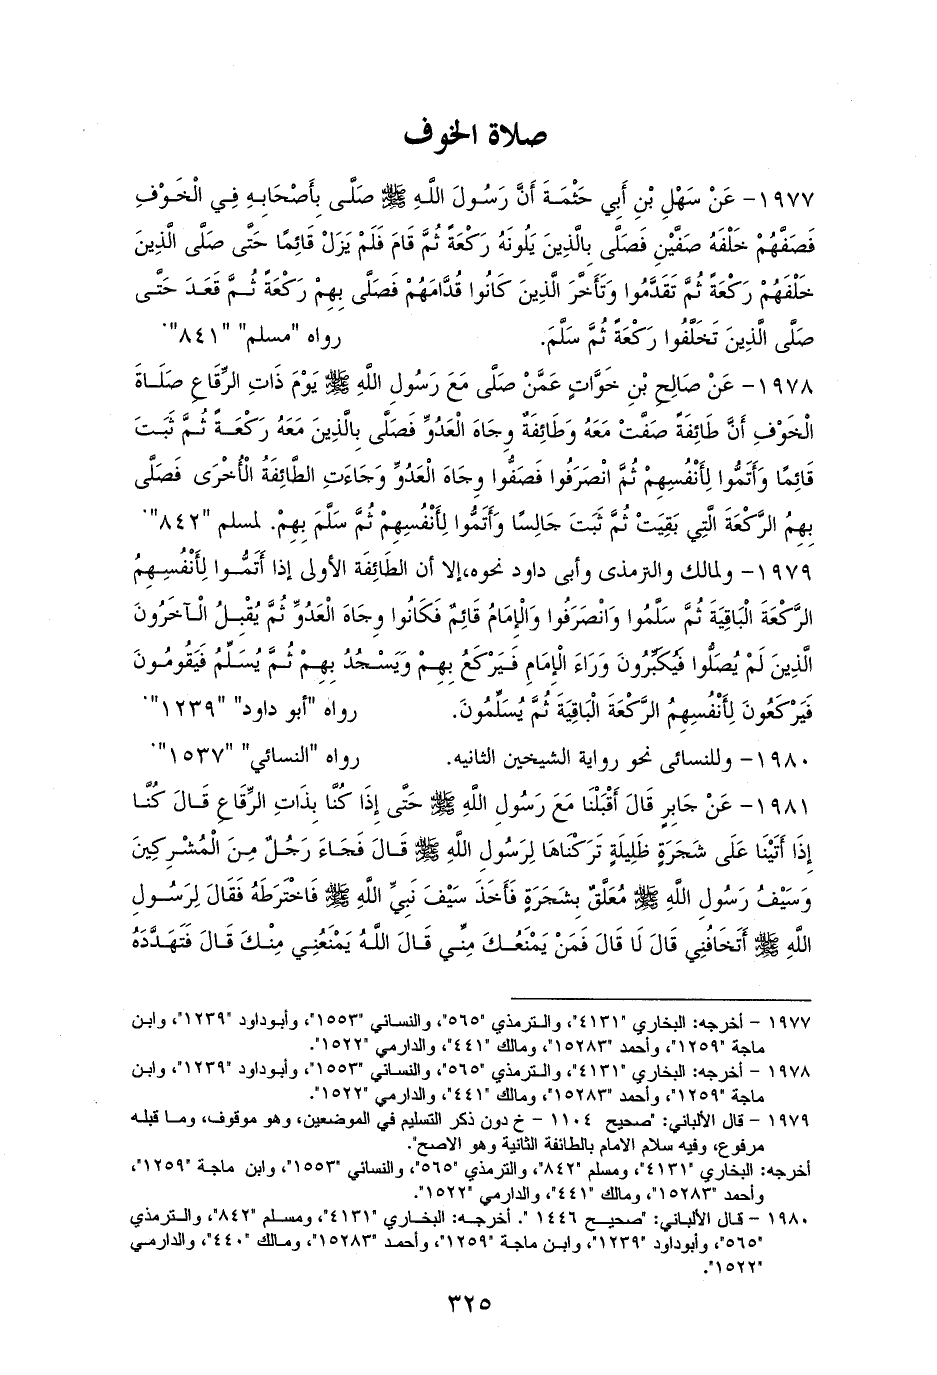 صلاة الخوف
١٩٧٧- عَنْ سَهْلِ بْنِ أَبِي حَثْمَةَ أَنَّ رَسُولَ اللَّهِ ﷺ صَلَّى بِأَصْحَابِهِ فِي الْخَوْفِ
فَصَفَّهُمْ خَلْفَهُ صَفَّيْنِ فَصَلَّى بِالَّذِينَ يَلُونَهُ رَكْعَةً ثُمَّ قَامَ فَلَمْ يَزَلْ قَائِمًا حَتَّى صَلَّى الَّذِينَ
خَلْفَهُمْ رَكْعَةً ثُمَّ تَقَدَّمُوا وَتَأَخَّرَ الَّذِينَ كَانُوا قُدَّامَهُمْ فَصَلَّى بِهِمْ رَكْعَةً ثُمَّ قَعَدَ حَتَّى
صَلَّى الَّذِينَ تَخَلَّفُوا رَكْعَةً ثُمَّ سَلَّمَ. رواه "مسلم" "٨٤١".
١٩٧٨- عَنْ صَالِحِ بْنِ خَوَّاتٍ عَمَّنْ صَلَّى مَعَ رَسُولِ اللهِ ﷺ يَوْمَ ذَاتِ الرِّقَاعِ صَلَاةَ
الْخَوْفِ أَنَّ طَائِفَةً صَفَّتْ مَعَهُ وَطَائِفَةٌ وِجَاهَ الْعَدُوِّ فَصَلَّى بِالَّذِينَ مَعَهُ رَكْعَةً ثُمَّ ثَبَتَ
قَائِمًا وَأَتَمُّوا لِأَنْفُسِهِمْ ثُمَّ انْصَرَفُوا فَصَفُّوا وِجَاهَ الْعَدُوِّ وَجَاءَتِ الطَّائِفَةُ الْأُخْرَى فَصَلَّى
بِهِمُ الرَّكْعَةَ الَّتِي بَقِيَتْ ثُمَّ ثَبَتَ جَالِسًا وَأَتَمُّوا لِأَنْفُسِهِمْ ثُمَّ سَلَّمَ بِهِمْ. لمسلم "٨٤٢".
١٩٧٩- ولمالك والترمذى وأبى داود نحوه،إلا أن الطَائِفَة الأولى إذا أَتَمُّوا لِأَنْفُسِهِمُ
الرَّكْعَةَ الْبَاقِيَةَ ثُمَّ سَلَّمُوا وَانْصَرَفُوا وَالْإِمَامُ قَائِمٌ فَكَانُوا وِجَاهَ الْعَدُوِّ ثُمَّ يُقْبِلُ الْآخَرُونَ
الَّذِينَ لَمْ يُصَلُّوا فَيُكَبِّرُونَ وَرَاءَ الْإِمَامِ فَيَرْكَعُ بِهِمْ وَيَسْجُدُ بِهِمْ ثُمَّ يُسَلِّمُ فَيَقُومُونَ
فَيَرْكَعُونَ لِأَنْفُسِهِمُ الرَّكْعَةَ الْبَاقِيَةَ ثُمَّ يُسَلِّمُونَ. رواه "أبو داود" "١٢٣٩".
١٩٨٠- وللنسائى نحو رواية الشيخين الثانيه. رواه "النسائي" "١٥٣٧".
١٩٨١- عَنْ جَابِرٍ قَالَ أَقْبَلْنَا مَعَ رَسُولِ اللَّهِ ﷺ حَتَّى إِذَا كُنَّا بِذَاتِ الرِّقَاعِ قَالَ كُنَّا
إِذَا أَتَيْنَا عَلَى شَجَرَةٍ ظَلِيلَةٍ تَرَكْنَاهَا لِرَسُولِ اللَّهِ ﷺ قَالَ فَجَاءَ رَجُلٌ مِنَ الْمُشْرِكِينَ
وَسَيْفُ رَسُولِ اللَّهِ ﷺ مُعَلَّقٌ بِشَجَرَةٍ فَأَخَذَ سَيْفَ نَبِيِّ اللَّهِ ﷺ فَاخْتَرَطَهُ فَقَالَ لِرَسُولِ
اللَّهِ ﷺ أَتَخَافُنِي قَالَ لَا قَالَ فَمَنْ يَمْنَعُكَ مِنِّي قَالَ اللَّهُ يَمْنَعُنِي مِنْكَ قَالَ فَتَهَدَّدَهُ
١٩٧٧ - أخرجه: البخاري "٤١٣١"، والترمذي "٥٦٥"، والنسائي "١٥٥٣"، وأبوداود "١٢٣٩"، وابن
ماجة "١٢٥٩"، وأحمد "١٥٢٨٣"، ومالك "٤٤١"، والدارمي "١٥٢٢".
١٩٧٨ - أخرجه: البخاري "٤١٣١"، والترمذي "٥٦٥"، والنسائي "١٥٥٣"، وأبوداود "١٢٣٩"، وابن
ماجة "١٢٥٩"، وأحمد "١٥٢٨٣"، ومالك "٤٤١"، والدارمي "١٥٢٢".
١٩٧٩ - قال الألباني: "صحيح ١١٠٤ - خ دون ذكر التسليم في الموضعين، وهو موقوف، وما قبله
مرفوع، وفيه سلام الامام بالطائفة الثانية وهو الاصح".
أخرجه: البخاري "٤١٣١"، ومسلم "٨٤٢"، والترمذي "٥٦٥"، والنسائي "١٥٥٣"، وابن ماجة "١٢٥٩"،
وأحمد "١٥٢٨٣"، ومالك "٤٤١"، والدارمي "١٥٢٢".
١٩٨٠ - قال الألباني: "صحيح ١٤٤٦ ". أخرجه: البخاري "٤١٣١"، ومسلم "٨٤٢"، والترمذي
"٥٦٥"، وأبوداود "١٢٣٩"، وابن ماجة "١٢٥٩"، وأحمد "١٥٢٨٣"، ومالك "٤٤٠"، والدارمي
"١٥٢٢".
٣٢٥